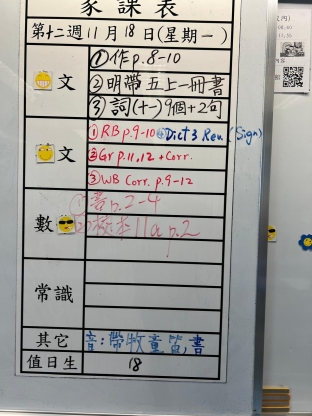 家課表
第十二週11月18日(星期一)
文
①作p.8-10
②明帶五上一冊書
③詞(十一)9個+2句
文
①RB p.9-10 ④Dict 3 Rev. (Sign)
②Gr p.11,12 + Corr.
③WB Corr. p.9-12
數
①書p.2-4
②校本11a p.2
常識
其它
音:帶牧童笛書
值日生
18